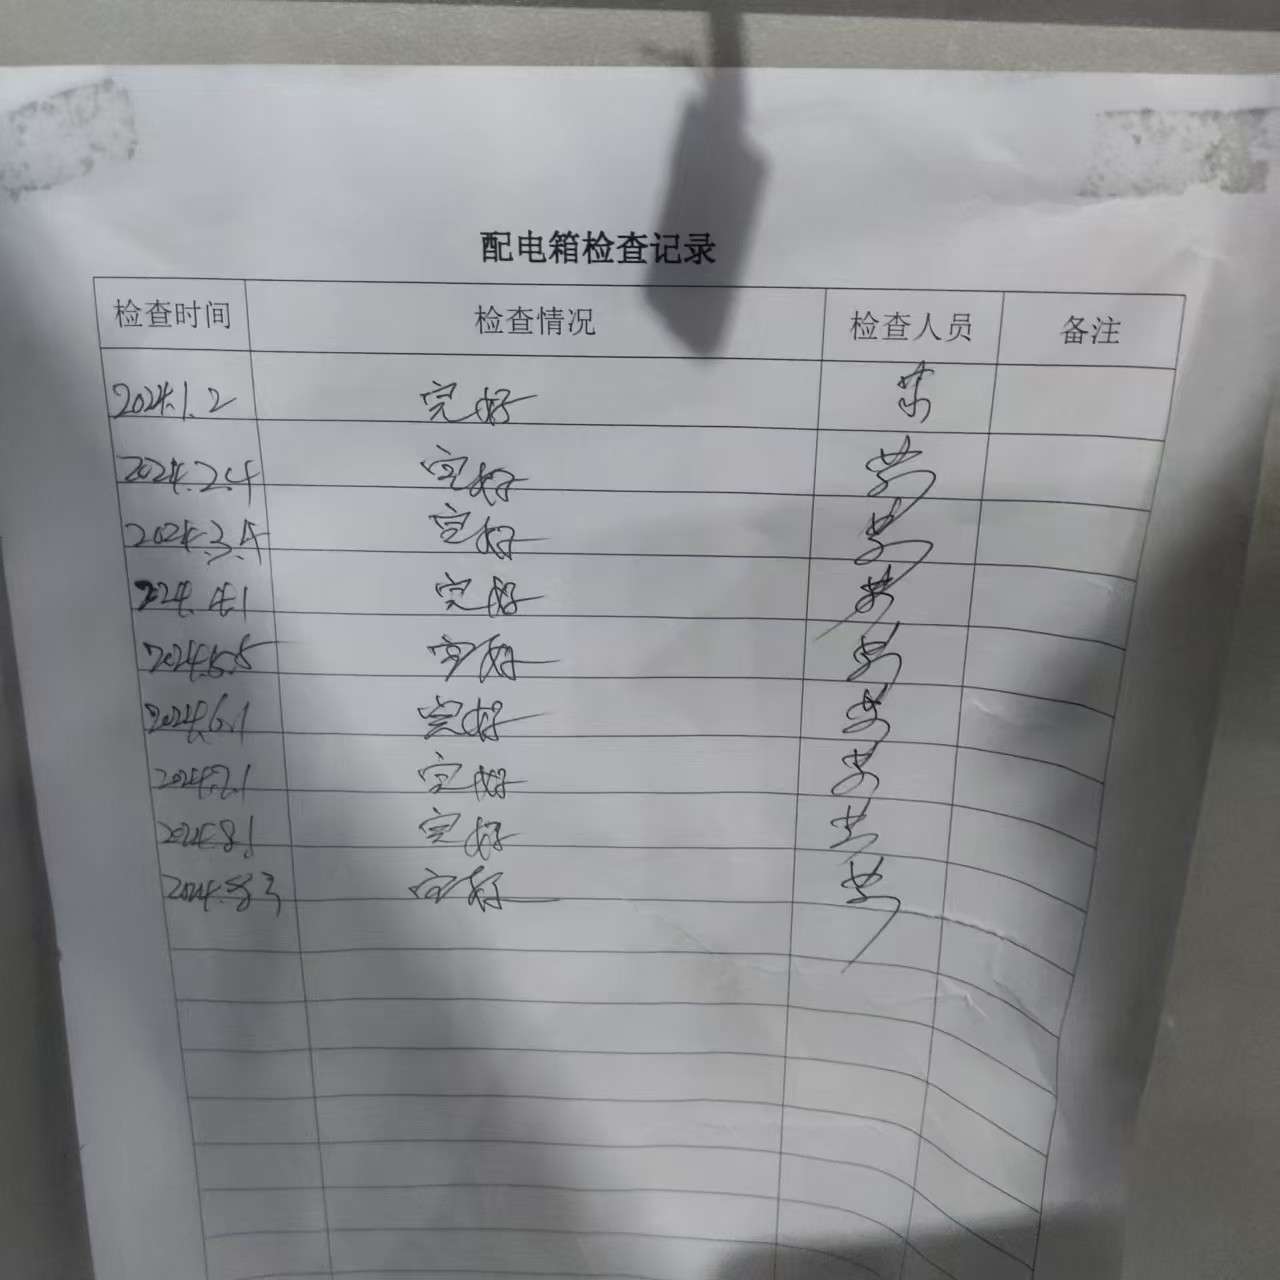 配电箱检查记录
检查时间 检查情况 检查人员 备注
2024.1.2 完好
2024.2.4 完好
2024.3.4 完好
2024.4.1 完好
2024.5.5 完好
2024.6.1 完好
2024.7.1 完好
2024.8.1 完好
2024. 完好